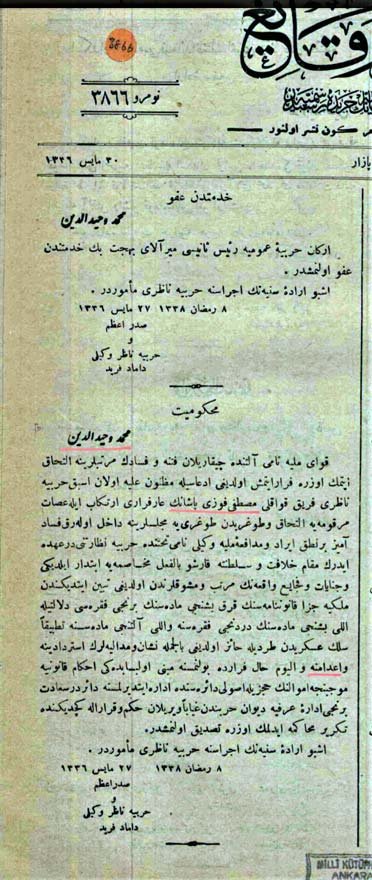 3866
وقایع
نومرو ٣٨٦٦
هر کون نشر اولنور
٣٠ مایس ١٣٣٦
بازار
خدمتدن عفو
محمد وحیدالدین
ارکان حربیهٔ عمومیه رئیس ثانیسی میرآلای بهجت بك خدمتندن
عفو اولنمشدر .
اشبو ارادهٔ سنیه‌نك اجراسنه حربیه ناظری مأموردر .
٨ رمضان ١٣٣٨ ٢٧ مایس ١٣٣٦
صدر اعظم
و
حربیه ناظر وکیلی
داماد فرید
محکومیت
محمد وحیدالدین
قوای ملیه نامی آلتنده چیقاریلان فتنه و فسادك مرتبلرینه التحاق
ایتمك اوزره فرار ایتمش اولدیغی ادعاسیله مظنون علیه اولان اسبق حربیه
ناظری فریق قواقلی مصطفی فوزی پاشانك عارفراری ارتکاب ایله عصات
مرقومه‌یه التحاق وطوغریدن طوغری‌یه مجلسلرینه داخل اوله‌رق فساد
آمیز برنطق ایراد ومدافعهٔ ملیه وکیلی نامی تحتنده حربیه نظارتنی درعهده
ایدرك مقام خلافت و سلطنته قارشو بالفعل مخاصمه‌یه ابتدار ایلدیکی
وجنایات وفجایع واقعه‌نك مرتب ومشوقلرندن اولدیغی تبین ایتدیکندن
ملکیه جزا قانوننامه‌سنك قرق بشنجی ماده‌سنك برنجی فقره‌سی دلالتیله
اللی بشنجی ماده‌سنك دردنجی فقره‌سنه واللی آلتنجی ماده‌سنه تطبیقاً
سلك عسکریدن طردیله حائز اولدیغی بالجمله نشان ومدالیه‌لرك استردادینه
واعدامنه و الیوم حال فرارده بولنمسنه مبنی اولبابده‌کی احکام قانونیه
موجبنجه اموالنك حجزیله اصولی دائره‌سنده اداره ایتدیرلمسنه دائر درسعادت
برنجی ادارهٔ عرفیه دیوان حربندن غیاباً ویریلان حکم وقرار اله کچدیکنده
تکریر محاکمه ایدلمك اوزره تصدیق اولنمشدر .
اشبو ارادهٔ سنیه‌نك اجراسنه حربیه ناظری مأموردر .
٨ رمضان ١٣٣٨ ٢٧ مایس ١٣٣٦
صدراعظم
و
حربیه ناظر وکیلی
داماد فرید
MİLLİ KÜTÜPH
ANKARA